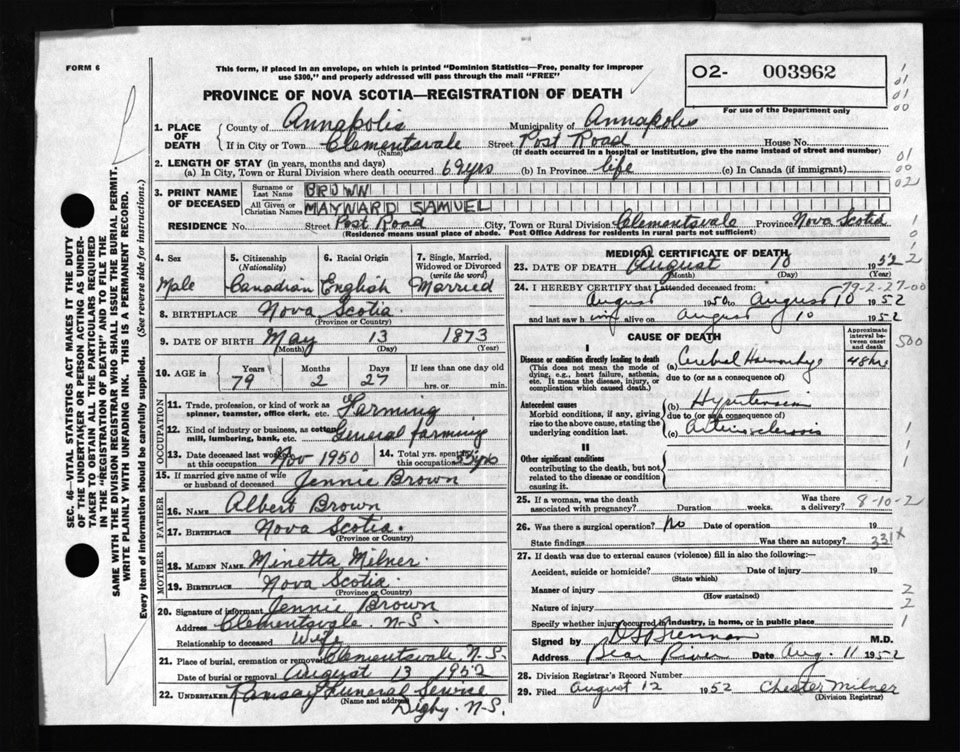 FORM 6
This form, if placed in an envelope, on which is printed "Dominion Statistics—Free, penalty for improper
use $300," and properly addressed will pass through the mail "FREE"
PROVINCE OF NOVA SCOTIA—REGISTRATION OF DEATH
02- 003962
For use of the Department only
1. PLACE OF DEATH
County of Annapolis Municipality of Annapolis
If in City or Town Clementsvale Street Post Road House No.
(Name) (If death occurred in a hospital or institution, give the name instead of street and number)
2. LENGTH OF STAY (in years, months and days)
(a) In City, Town or Rural Division where death occurred 69yrs (b) In Province life (c) In Canada (if immigrant)
3. PRINT NAME OF DECEASED
Surname or Last Name BROWN
All Given or Christian Names MAYNARD SAMUEL
RESIDENCE No. Street Post Road City, Town or Rural Division Clementsvale Province Nova Scotia
(Residence means usual place of abode. Post Office Address for residents in rural parts not sufficient)
4. Sex Male
5. Citizenship (Nationality) Canadian
6. Racial Origin English
7. Single, Married, Widowed or Divorced (write the word) Married
8. BIRTHPLACE Nova Scotia
(Province or Country)
9. DATE OF BIRTH May 13 1873
(Month) (Day) (Year)
10. AGE in Years Months Days If less than one day old
79 2 27 hrs. or min.
OCCUPATION
11. Trade, profession, or kind of work as spinner, teamster, office clerk, etc. Farming
12. Kind of industry or business, as cotton mill, lumbering, bank, etc. General farming
13. Date deceased last worked at this occupation Nov 1950
14. Total yrs. spent in this occupation
15. If married give name of wife or husband of deceased Jennie Brown
FATHER
16. NAME Albert Brown
17. BIRTHPLACE Nova Scotia.
(Province or Country)
MOTHER
18. MAIDEN NAME Minetta Milner.
19. BIRTHPLACE Nova Scotia.
(Province or Country)
20. Signature of informant Jennie Brown
Address Clementsvale N.S.
Relationship to deceased Wife
21. Place of burial, cremation or removal Clementsvale N.S.
Date of burial or removal August 13 1952
22. UNDERTAKER Ramsay Funeral Service
(Name and address) Digby. N-S.
MEDICAL CERTIFICATE OF DEATH
23. DATE OF DEATH August 10 1952
(Month) (Day)
24. I HEREBY CERTIFY that I attended deceased from: 79-2-27-00
August 1950 to August 10 1952
and last saw him alive on August 10 1952
CAUSE OF DEATH
Approximate interval between onset and death
I
Disease or condition directly leading to death
(This does not mean the mode of dying, e.g., heart failure, asthenia, etc. It means the disease, injury, or complication which caused death.)
(a) Cerebral Hemorrhage 48hrs
due to (or as a consequence of)
Antecedent causes
Morbid conditions, if any, giving rise to the above cause, stating the underlying condition last.
(b) Hypertension
due to (or as a consequence of)
(c) Arteriosclerosis
II
Other significant conditions
contributing to the death, but not related to the disease or condition causing it.
25. If a woman, was the death associated with pregnancy? Duration weeks. Was there a delivery? 8-10-2
26. Was there a surgical operation? No Date of operation 19
State findings Was there an autopsy? 331x
27. If death was due to external causes (violence) fill in also the following:—
Accident, suicide or homicide? Date of injury 19
(State which)
Manner of injury
(How sustained)
Nature of injury
Specify whether injury occurred in industry, in home, or in public place
Signed by M.D.
Address Bear River Date Aug. 11 1952
28. Division Registrar's Record Number
29. Filed August 12 1952 Chester Milner
(Division Registrar)
SEC. 46—VITAL STATISTICS ACT MAKES IT THE DUTY
OF THE UNDERTAKER OR PERSON ACTING AS UNDER-
TAKER TO OBTAIN ALL THE PARTICULARS REQUIRED
IN THE "REGISTRATION OF DEATH" AND TO FILE THE
SAME WITH THE DIVISION REGISTRAR WHO SHALL ISSUE THE BURIAL PERMIT.
WRITE PLAINLY WITH UNFADING INK. THIS IS A PERMANENT RECORD.
Every item of information should be carefully supplied. (See reverse side for instructions.)